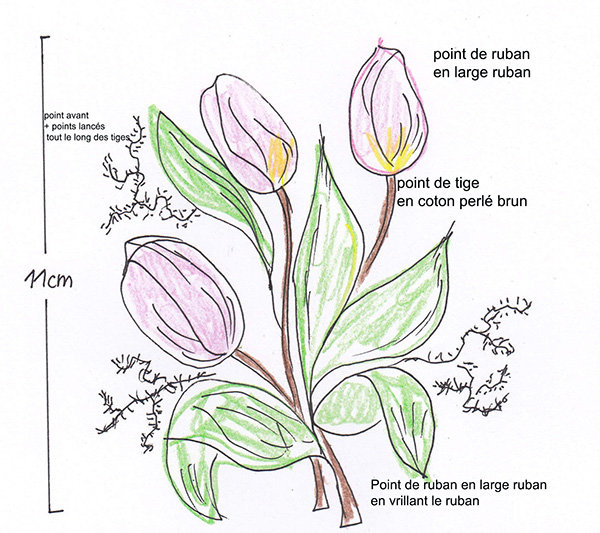 point de ruban
en large ruban
point avant
+ points lancés
tout le long des tiges
point de tige
en coton perlé brun
11cm
Point de ruban en large ruban
en vrillant le ruban